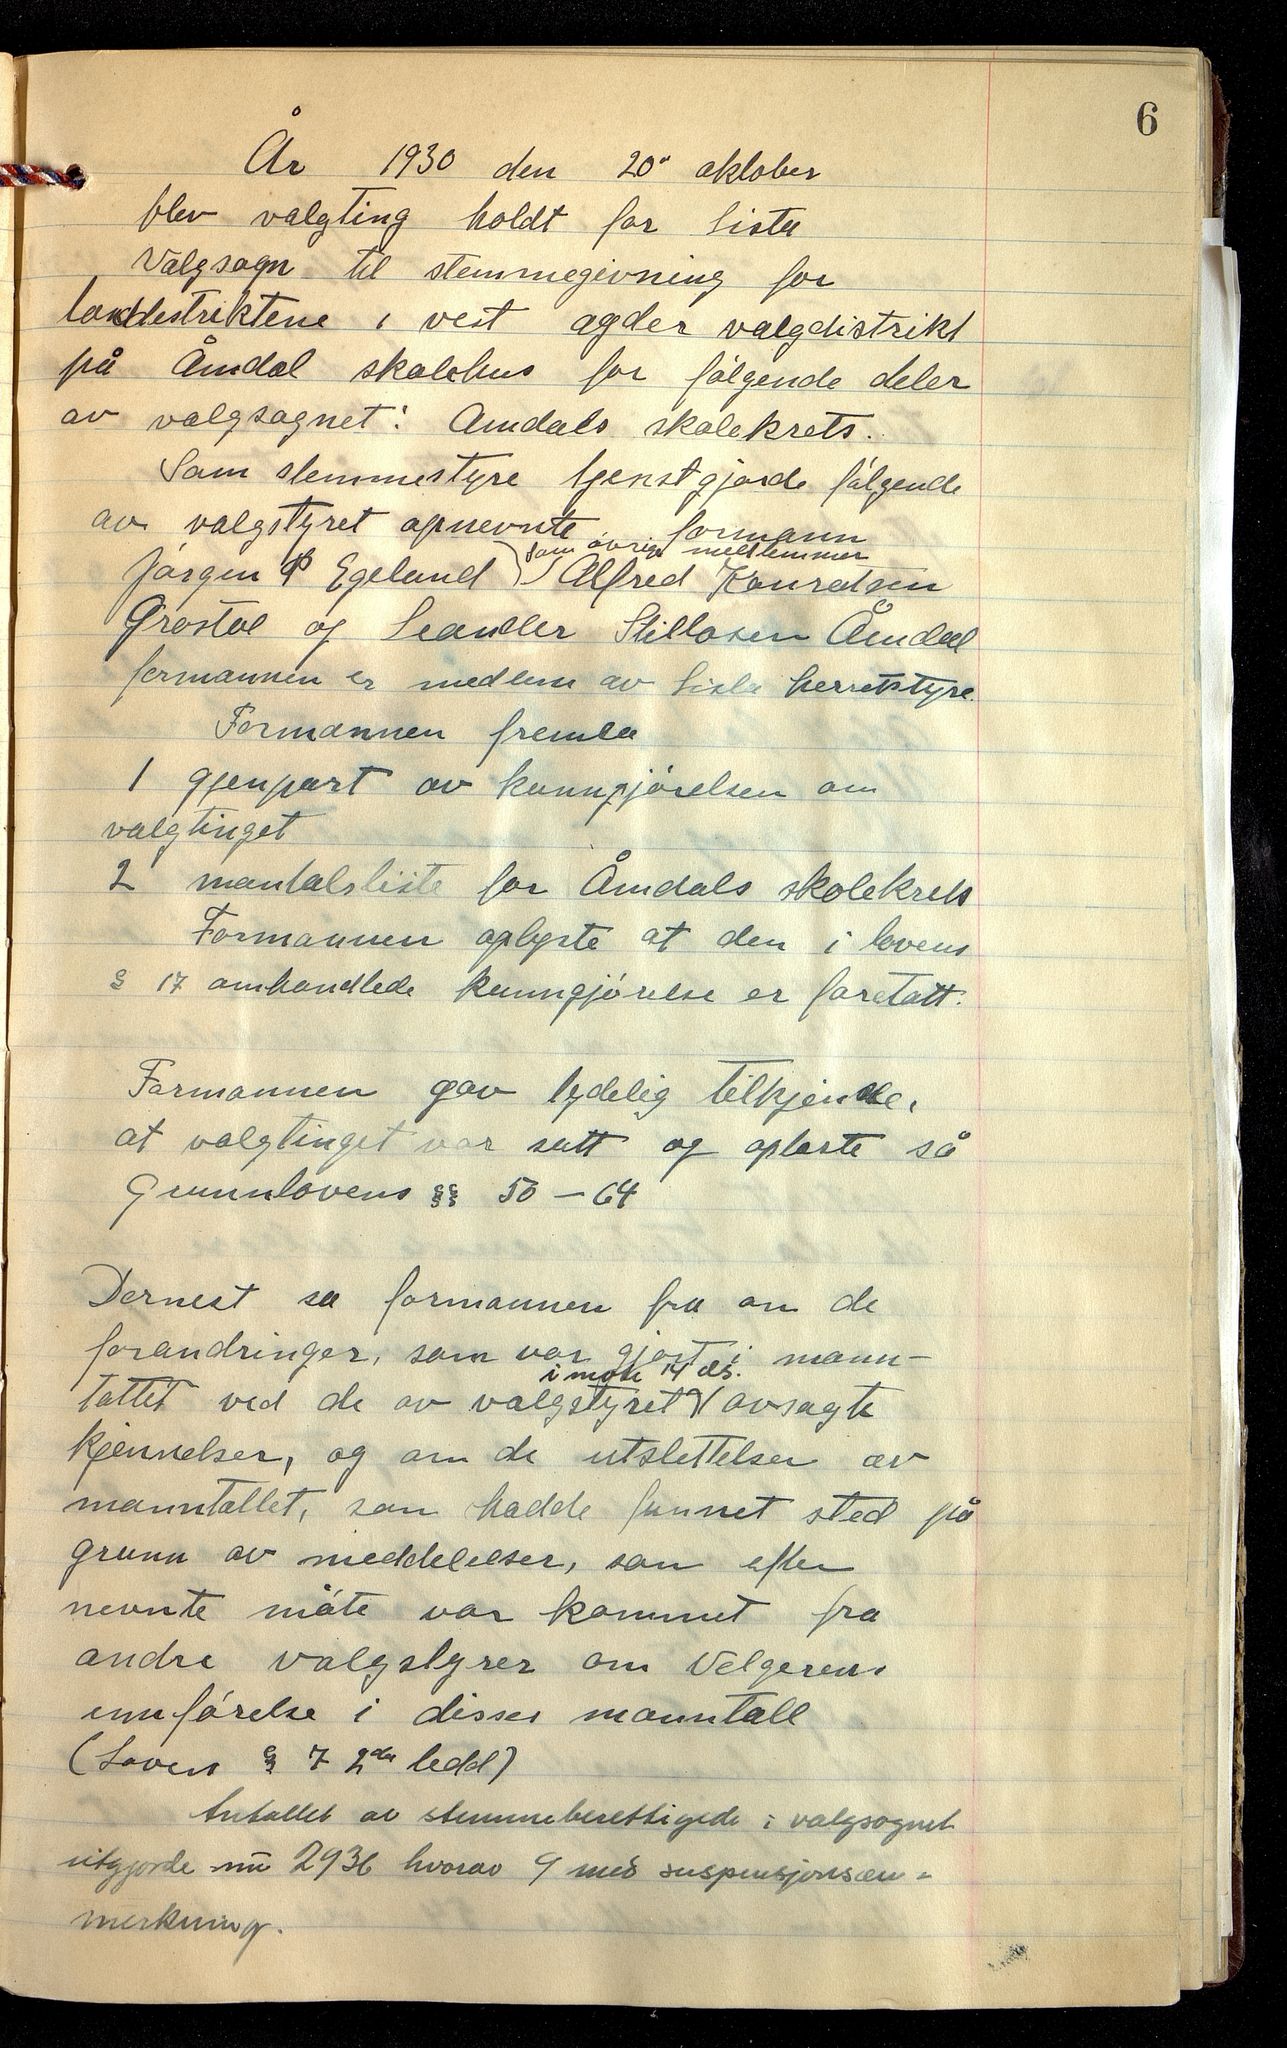 6
År 1930 den 20de oktober
blev valgting holdt for Lista
Valgsogn til stemmegivning for
landdistriktene i vest agder valgdistrikt
på Åmdal skolehus for følgende deler
av valgsognet: Åmdals skolekrets.
Som stemmestyre tjenstgjorde følgende
av valgstyret opnevnte formann
som øvrige medlemmer
Jørgen P Egeland Alfred Konradsen
Grostøl og Leander Stillosen Åmdal
formannen er medlem av Lista herretstyre.
Formannen fremla
1 gjenpart av kunngjørelsen om
valgtinget
2 mantalsliste for Åmdals skolekrets
Formannen oplyste at den i lovens
§ 17 omhandlede kunngjørelse er foretatt.
Formannen gav tydelig tilkjende,
at valgtinget var satt og oplæste så
Grunnlovens §§ 50 – 64
Dernest sa formannen fra om de
forandringer, som var gjort i mann-
i møte 14 ds.
tallet ved de av valgstyret avsagte
kjennelser, og om de utslettelser av
manntallet, som hadde funnet sted på
grunn av meddelelser, som efter
nevnte måte var kommet fra
andre valgstyrer om Velgerens
innførelse i disses manntall
(Lovens § 7 2det ledd)
Antallet av stemmeberettigede i valgsognet
utgjorde nu 2936 hvorav 9 med suspensjonsan-
merkning.